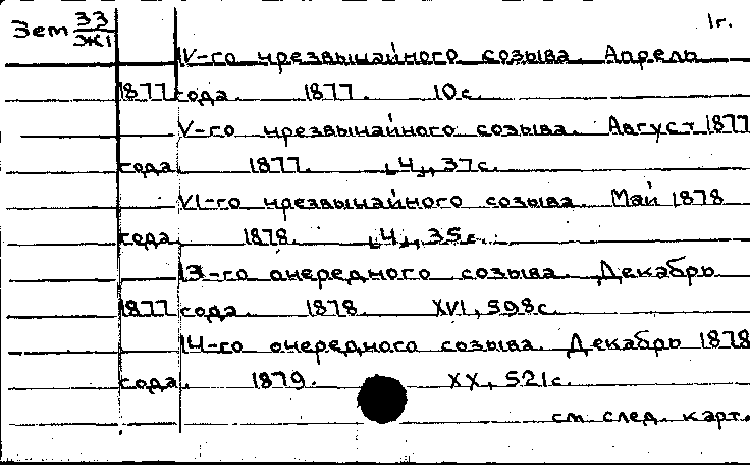 Зем 33/ЭК1 1г.
IV-го чрезвычайного созыва. Апрель
1877 года. 1877. 10с.
V-го чрезвычайного созыва. Август 1877
года. 1877. [4], 37с.
VI-го чрезвычайного созыва. Май 1878
года. 1878. [4], 35с.
13-го очередного созыва. Декабрь
1877 года. 1878. XVI, 598с.
14-го очередного созыва. Декабрь 1878
года. 1879. XX, 521с.
см. след. карт.